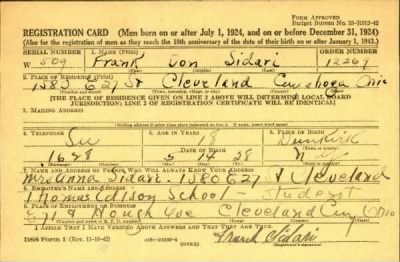 FORM APPROVED
Budget Bureau No. 33-R012-42
REGISTRATION CARD (Men born on or after July 1, 1924, and on or before December 31, 1924)
(Also for the registration of men as they reach the 18th anniversary of the date of their birth on or after January 1, 1943.)
SERIAL NUMBER 1. NAME (Print) ORDER NUMBER
W 509 Frank Don Sidari 12269
(First) (Middle) (Last)
2. PLACE OF RESIDENCE (Print)
1583 E 27 St Cleveland Cuyahoga Ohio
(Number and street) (Town, township, village, or city) (County) (State)
[THE PLACE OF RESIDENCE GIVEN ON LINE 2 ABOVE WILL DETERMINE LOCAL BOARD
JURISDICTION; LINE 2 OF REGISTRATION CERTIFICATE WILL BE IDENTICAL]
3. MAILING ADDRESS
4. TELEPHONE 5. AGE IN YEARS 6. PLACE OF BIRTH
18 Dunkirk
DATE OF BIRTH
1628 5 14 28 N
7. NAME AND ADDRESS OF PERSON WHO WILL ALWAYS KNOW YOUR ADDRESS
Mrs Anna Sidari 1580 E 27 St Cleveland
8. EMPLOYER'S NAME AND ADDRESS
Thomas Edison School - Student
9. PLACE OF EMPLOYMENT OR BUSINESS
E 71 & Hough Ave Cleveland Cuy Ohio
I AFFIRM THAT I HAVE VERIFIED ABOVE ANSWERS AND THAT THEY ARE TRUE.
DSS Form 1 (Rev. 11-16-42) Frank Sidari